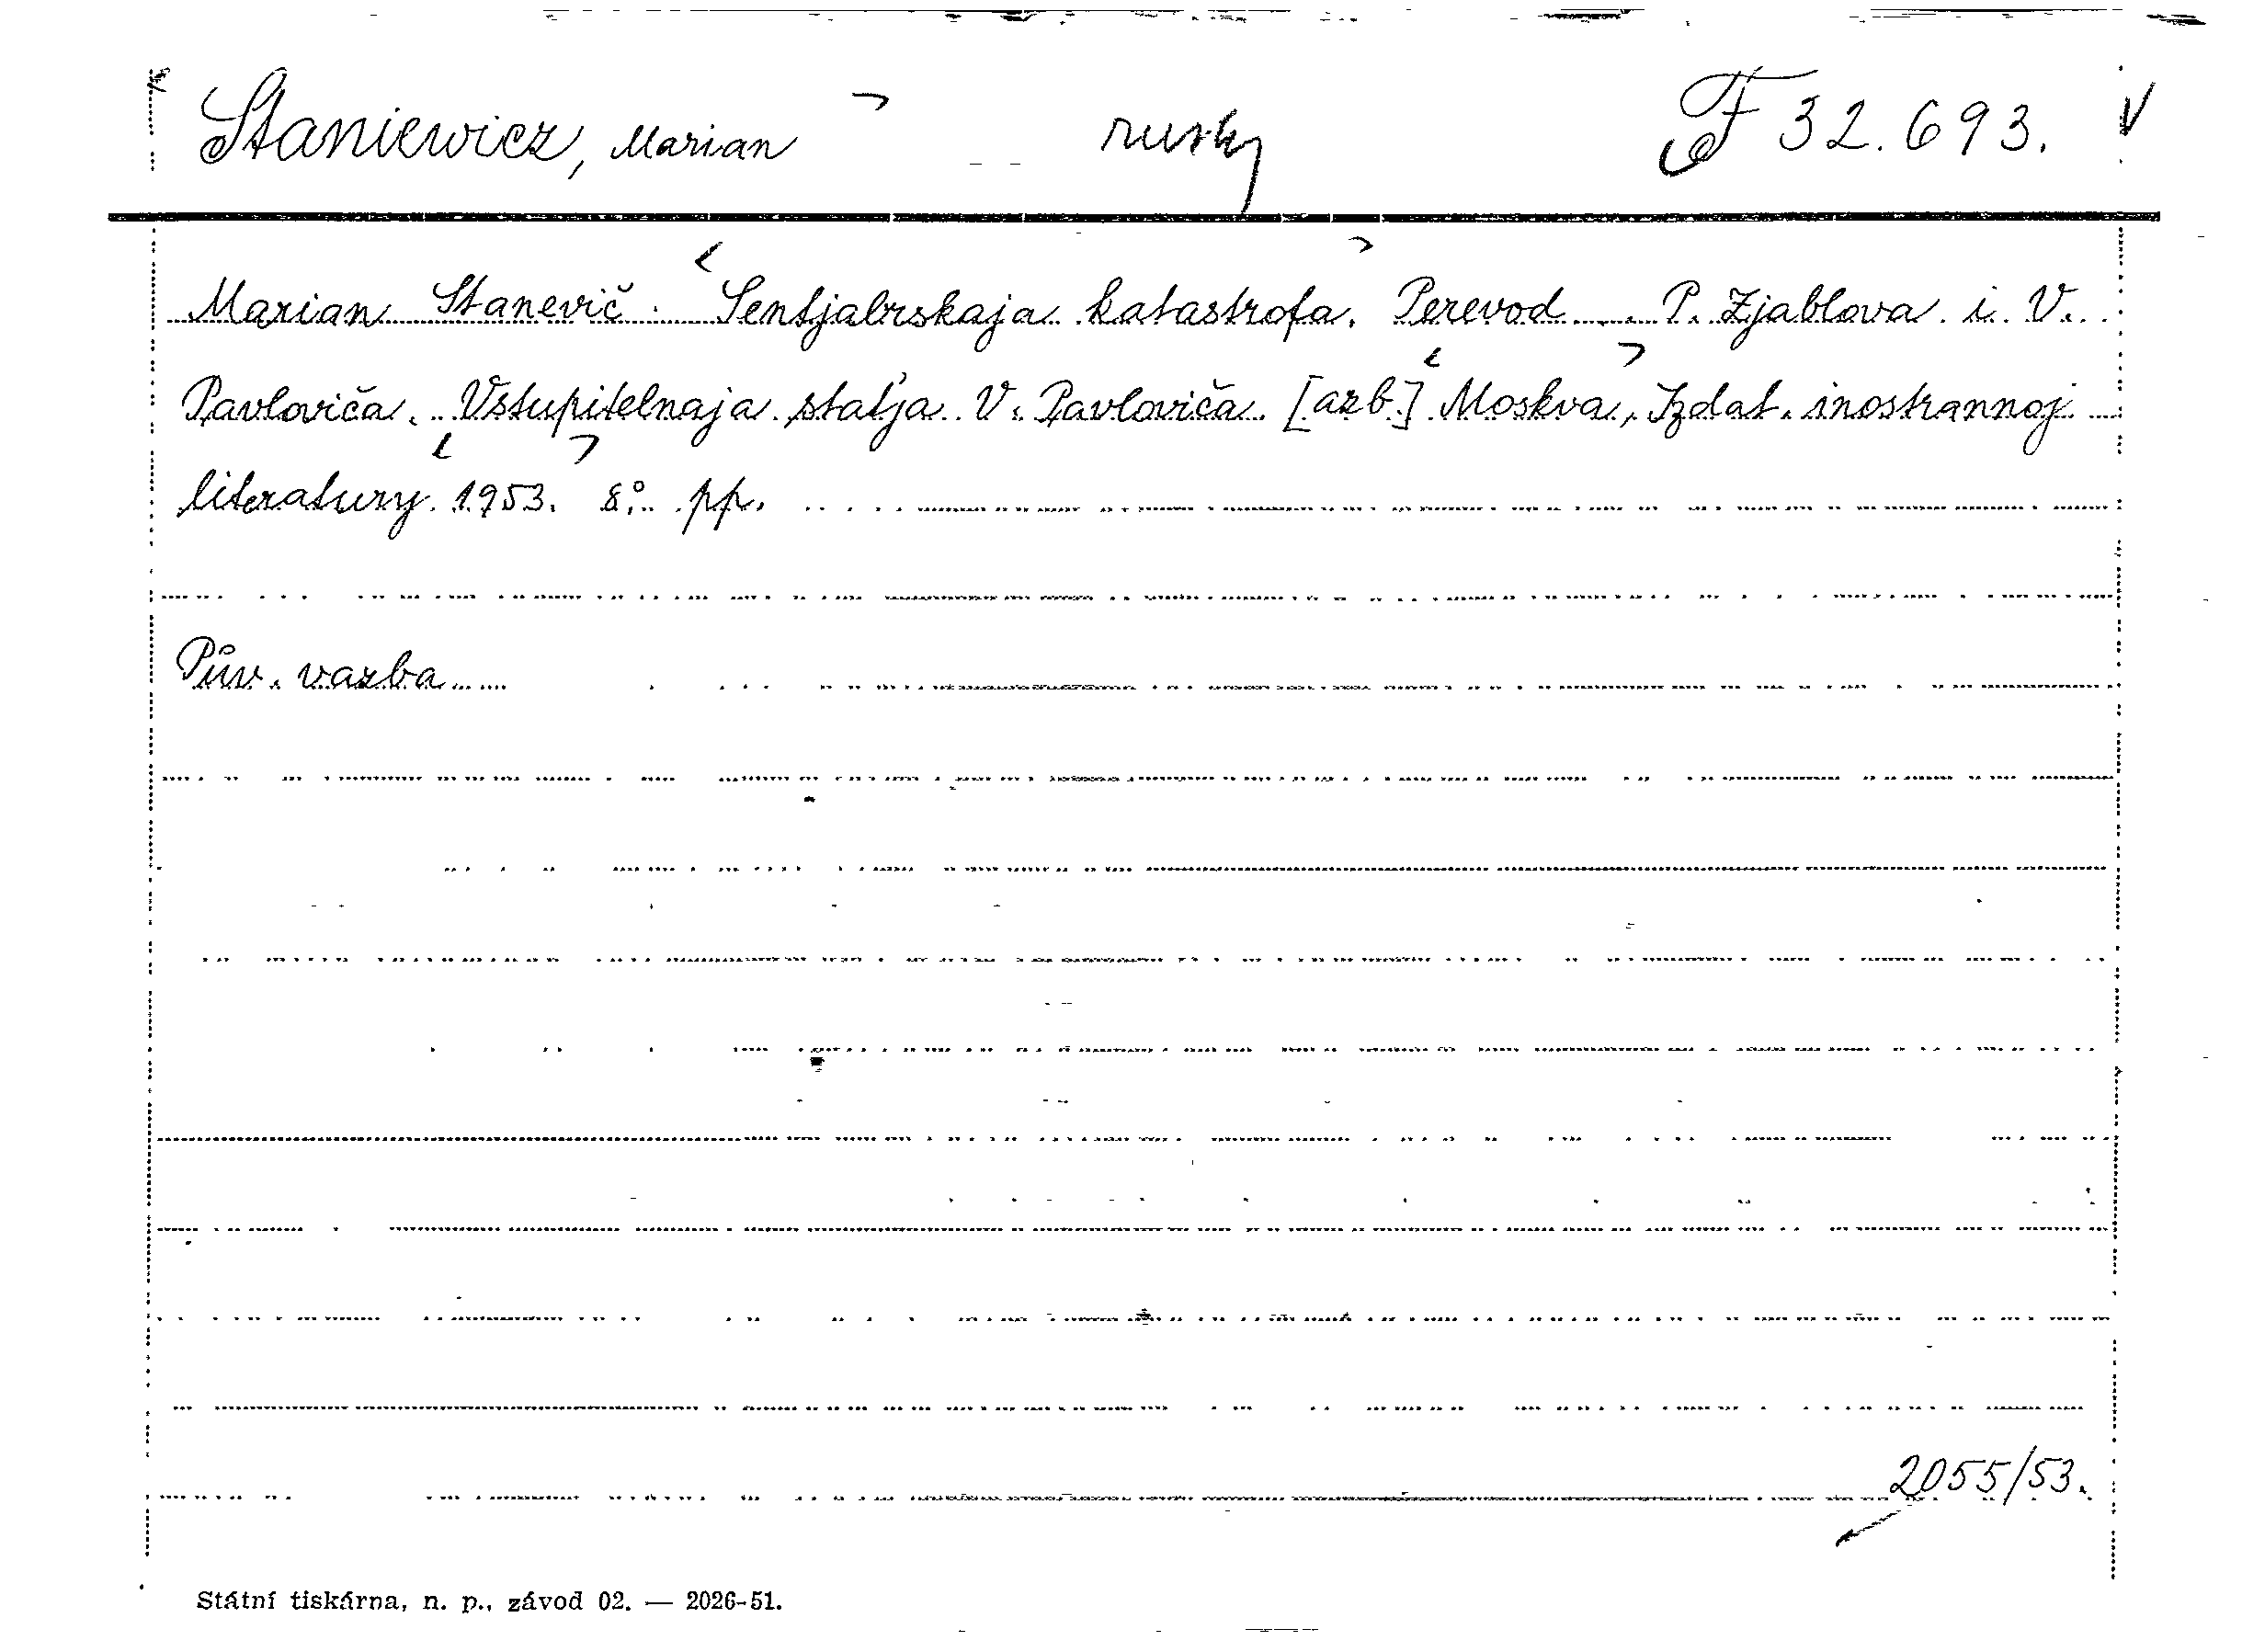 Staniewicz, Marian rusky F 32.693.
Marian Stanevič. Sentjabrskaja katastrofa. Perevod . P. Zjablova i V.
Pavloviča. Vstupitelnaja stat'ja V. Pavloviča [azb.] Moskva, Izdat. inostrannoj
literatury 1953. 8°. pp.
Pův. vazba
2055/53.
Státní tiskárna, n. p., závod 02. — 2026-51.